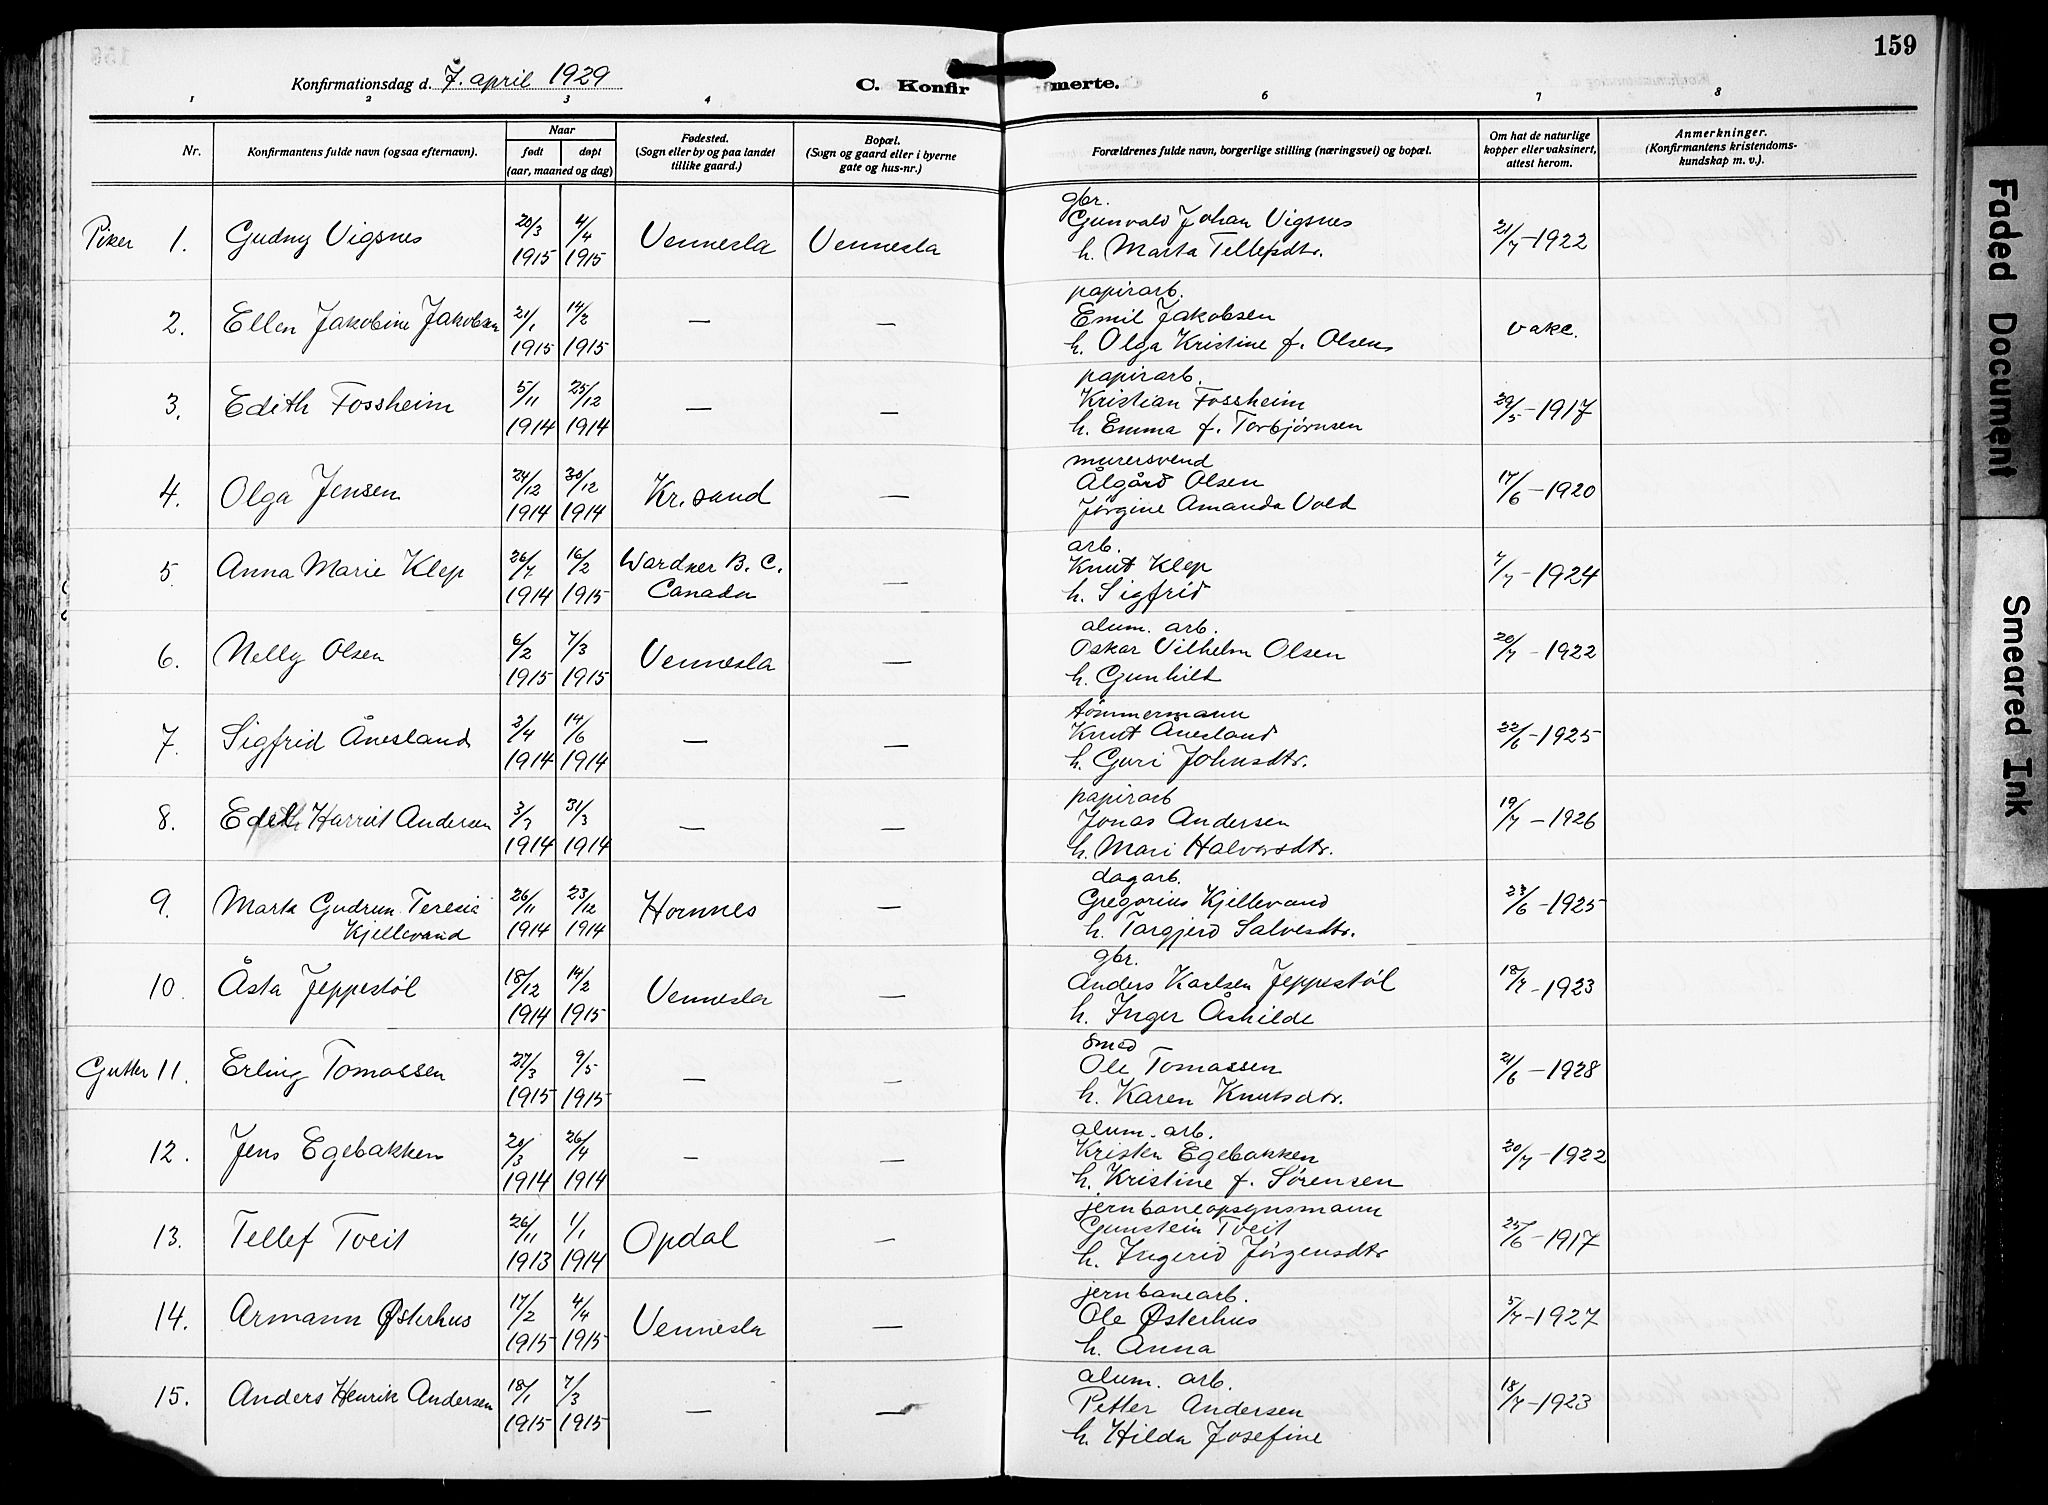 159
Konfirmationsdag d. 7. april 1929
C. Konfirmerte.
1 2 3 4 6 7 8
Nr.
Konfirmantens fulde navn (ogsaa efternavn).
Naar
født døpt
(aar, maaned og dag)
Fødested.
(Sogn eller by og paa landet
tillike gaard.)
Bopæl.
(Sogn og gaard eller i byerne
gate og hus-nr.)
Forældrenes fulde navn, borgerlige stilling (næringsvei) og bopæl.
Om hat de naturlige
kopper eller vaksinert,
attest herom.
Anmerkninger.
(Konfirmantens kristendoms-
kundskap m. v.).
gbr.
Piker 1. Gudny Vigsnes 20/3 4/4 Vennesla Vennesla Gunvald Johan Vigsnes 21/7-1922
1915 1915 h. Marta Tellefsdtr.
papirarb.
2. Ellen Jakobine Jakobsen 21/1 14/2 — — Emil Jakobsen vakc.
1915 1915 h. Olga Kristine f. Olsen
papirarb.
3. Edith Fossheim 5/11 25/12 — — Kristian Fossheim 29/5-1917
1914 1914 h. Emma f. Torbjørnsen
murersvend
4. Olga Jensen 24/12 30/12 Kr. sand — Ålgård Olsen 17/6-1920
1914 1914 Jørgine Amanda Vold
arb.
5. Anna Marie Klep 26/7 16/2 Wardner B. C. — Knut Klep 4/7-1924
1914 1915 Canada h. Sigfrid
alum. arb.
6. Nelly Olsen 6/2 7/3 Vennesla — Oskar Vilhelm Olsen 20/7-1922
1915 1915 h. Gunhild
tömmermann
7. Sigfrid Ånesland 2/4 14/6 — — Knut Ånesland 22/6-1925
1914 1914 h. Guri Johnsdtr.
papirarb
8. Edith Harriet Andersen 3/3 31/3 — — Jonas Andersen 19/7-1926
1914 1914 h. Mari Halvorsdtr.
dagarb.
9. Marta Gudrun Teresie 26/11 23/12 Hornnes — Gregorius Kjellevand 23/6-1925
Kjellevand 1914 1914 h. Torgjerd Salvesdtr.
gbr.
10. Åsta Jeppestøl 18/12 14/2 Vennesla — Anders Karlsen Jeppestøl 18/7-1923
1914 1915 h. Inger Åshilde
smed
Gutter 11. Erling Tomassen 27/3 9/5 — — Ole Tomassen 21/6-1928
1915 1915 h. Karen Knutsdtr.
alum. arb.
12. Jens Egebakken 20/3 26/4 — — Kristen Egebakken 20/7-1922
1914 1914 h. Kristine f. Sørensen
jernbaneopsynsmann
13. Tellef Tveit 26/11 1/1 Opdal — Gunstein Tveit 25/6-1917
1913 1914 h. Ingerid Jørgensdtr
jernbanearb.
14. Armann Østerhus 17/2 4/4 Vennesla — Ole Østerhus 5/7-1927
1915 1915 h. Anna
alum. arb.
15. Anders Henrik Andersen 18/1 7/3 — — Petter Andersen 18/7-1923
1915 1915 h. Hilda Josefine
Faded Document
Smeared Ink